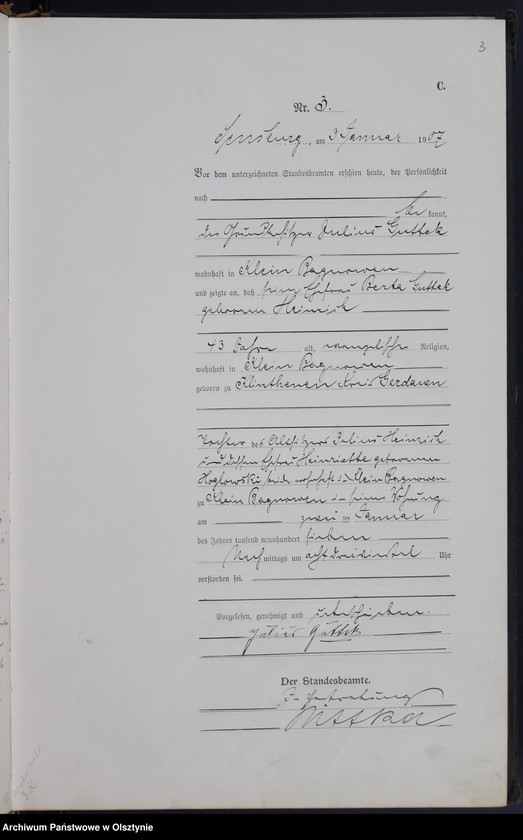 3
C.
Nr. 3.
Sensburg, am 3 Januar 1907
Vor dem unterzeichneten Standesbeamten erschien heute, der Persönlichkeit
nach
be kannt,
der Grundbesitzer Julius Guttek
wohnhaft in Klein Bagnowen
und zeigte an, daß seine Ehefrau Berta Guttek
geborene Heinrich
43 Jahre alt, evangelischer Religion,
wohnhaft in Klein Bagnowen
geboren zu Klinthenen Kreis Gerdauen
Tochter des Altsitzers Julius Heinrich
und dessen Ehefrau Henriette geborenen
beide wohnhaft in Klein Bagnowen
zu Klein Bagnowen in seiner Wohnung
am zwei ten Januar
des Jahres tausend neunhundert sieben
Nach mittags um acht dreiviertel Uhr
verstorben sei.
Vorgelesen, genehmigt und unterschrieben.
Julius Guttek
Der Standesbeamte.
In Vertretung
Archiwum Państwowe w Olsztynie